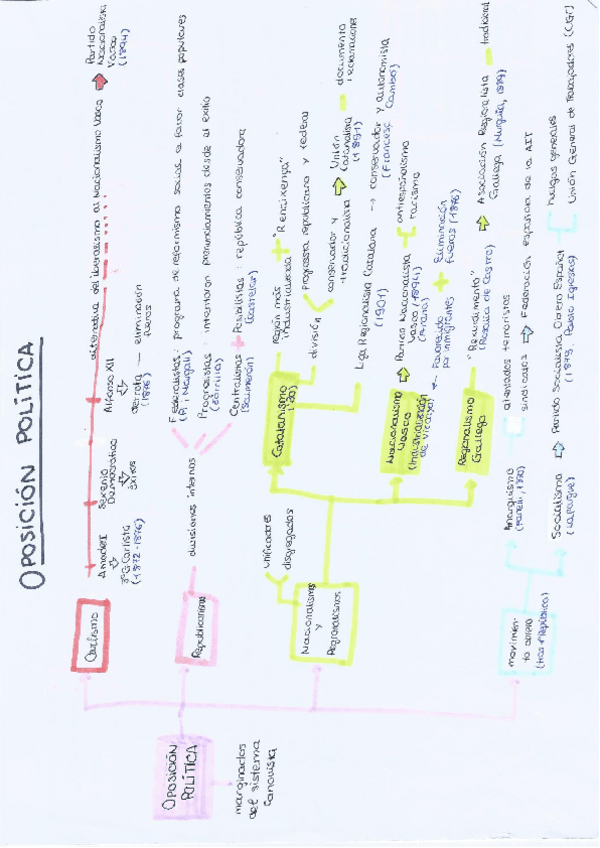 OPOSICIÓN POLÍTICA
OPOSICIÓN
POLÍTICA
marginados
del sistema
canovista
Carlismo
Amadeo I
3ª G. Carlista
(1872-1876)
Sexenio
Democrático
éxitos
Alfonso XII
derrota — eliminación
(1876) fueros
alternativa del liberalismo al Nacionalismo Vasco
Partido
Nacionalista
Vasco
(1894)
Republicanismo
divisiones internas
Federalistas: programa de reformismo social a favor clases populares
(Pi i Margall)
Progresistas: intentaron pronunciamientos desde el exilio
(Zorrilla)
Centralistas + Posibilistas: república conservadora
(Salmerón) (Castelar)
Nacionalismos
y
Regionalismos
unificadores
disgregados
Catalanismo
región más
industrializada
+ "Renaixença"
división
Progresista republicana y federal
conservador y
tradicionalista
Unión
Catalanista
(1891)
documento
reclamaciones
Liga Regionalista Catalana → conservador y autonomista
(1901) (Francesc Cambó)
Nacionalismo
Vasco
(industrialización
de Vizcaya)
Partido Nacionalista
Vasco (1894)
(Arana)
antiespañolismo
racismo
Favorecido
por inmigrantes
+ Eliminación
fueros (1876)
Regionalismo
Gallego
"Rexurdimento"
(Rosalía de Castro)
Asociación Regionalista
Gallega (Murguía, 1889)
tradicional
movimien-
to obrero
(tras 1ª República)
Anarquismo
atentados terroristas
sindicales → Federación española de la AIT
Socialismo
(Lafargue)
Partido Socialista Obrero Español
(1879, Pablo Iglesias)
huelgas generales
Unión General de Trabajadores (UGT)